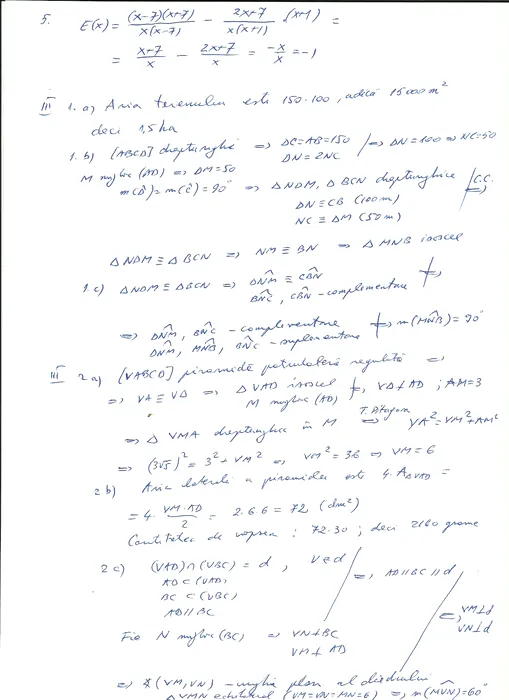 5. E(x) = (x-7)(x+7)/x(x-7) - 2x+7/x(x+1) · (x+1) =
= x+7/x - 2x+7/x = -x/x = -1
III 1. a) Aria terenului este 150·100, adică 15000 m²
deci 1,5 ha
1. b) [ABCD] dreptunghi ⇒ DC=AB=150 / ⇒ DN=100 ⇒ NC=50
DN=2NC
M mijloc (AD) ⇒ DM=50
m(D̂)=m(Ĉ)=90° ⇒ ΔNDM, ΔBCN dreptunghice / C.C. ⇒
DN≡CB (100m)
NC≡DM (50m)
ΔNDM ≡ ΔBCN ⇒ NM≡BN ⇒ ΔMNB isoscel
1.c) ΔNDM ≡ ΔBCN ⇒ DN̂M ≡ CB̂N
BN̂C, CB̂N - complementare / ⇒
⇒ DN̂M, BN̂C - complementare
DN̂M, MN̂B, BN̂C - suplementare / ⇒ m(MN̂B)=90°
III 2a) [VABCD] piramidă patrulateră regulată ⇒
⇒ VA≡VD ⇒ ΔVAD isoscel / ⇒ VM⊥AD ; AM=3
M mijloc (AD)
⇒ ΔVMA dreptunghic în M T. Pitagora ⇒ VA²=VM²+AM²
⇒ (3√5)² = 3² + VM² ⇒ VM²=36 ⇒ VM=6
2b) Aria laterală a piramidei este 4·AΔVAD =
= 4· VM·AD/2 = 2·6·6 = 72 (dm²)
Cantitatea de vopsea : 72·30 ; deci 2160 grame
2c) (VAD)∩(VBC) = d , V∈d / ⇒ AD∥BC∥d
AD⊂(VAD)
BC⊂(VBC)
AD∥BC
⇒ VM⊥d
VN⊥d
Fie N mijloc (BC) ⇒ VN⊥BC
VM⊥AD
⇒ ∢(VM,VN) - unghi plan al diedrului
ΔVMN echilateral (VM=VN=MN=6) ⇒ m(MV̂N)=60°